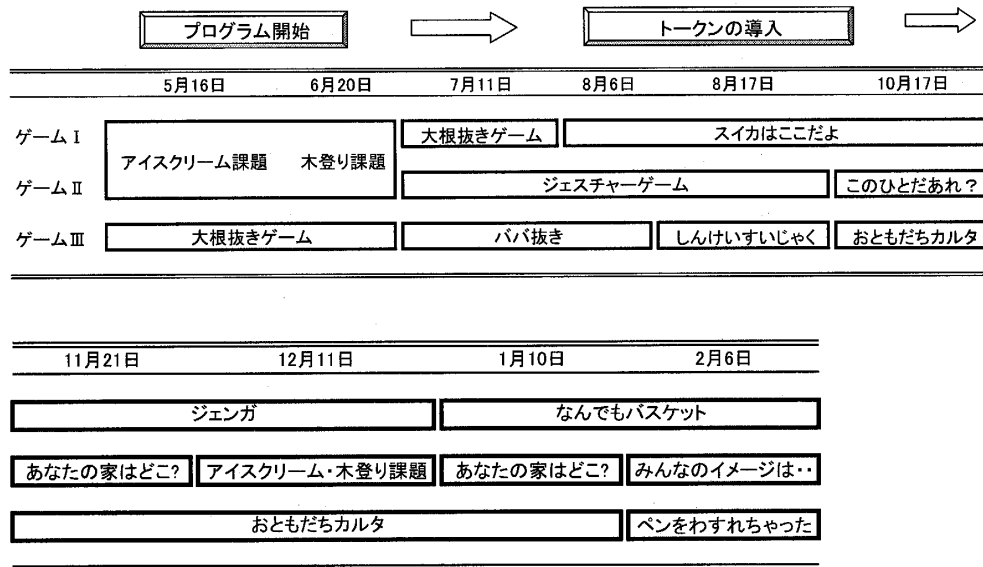 プログラム開始 トークンの導入
5月16日 6月20日 7月11日 8月6日 8月17日 10月17日
ゲームⅠ 大根抜きゲーム スイカはここだよ
アイスクリーム課題 木登り課題
ゲームⅡ ジェスチャーゲーム このひとだあれ?
ゲームⅢ 大根抜きゲーム ババ抜き しんけいすいじゃく おともだちカルタ
11月21日 12月11日 1月10日 2月6日
ジェンガ なんでもバスケット
あなたの家はどこ? アイスクリーム・木登り課題 あなたの家はどこ? みんなのイメージは・・
おともだちカルタ ペンをわすれちゃった